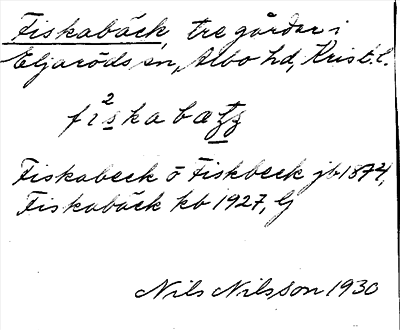 Fiskabäck, tre gårdar i
Eljaröds sn, Albo hd, Krist.l.
fi²skabatz
Fiskabeck o Fiskbeck jb 1874,
Fiskabäck kb 1927, Ej
Nils Nilsson 1930